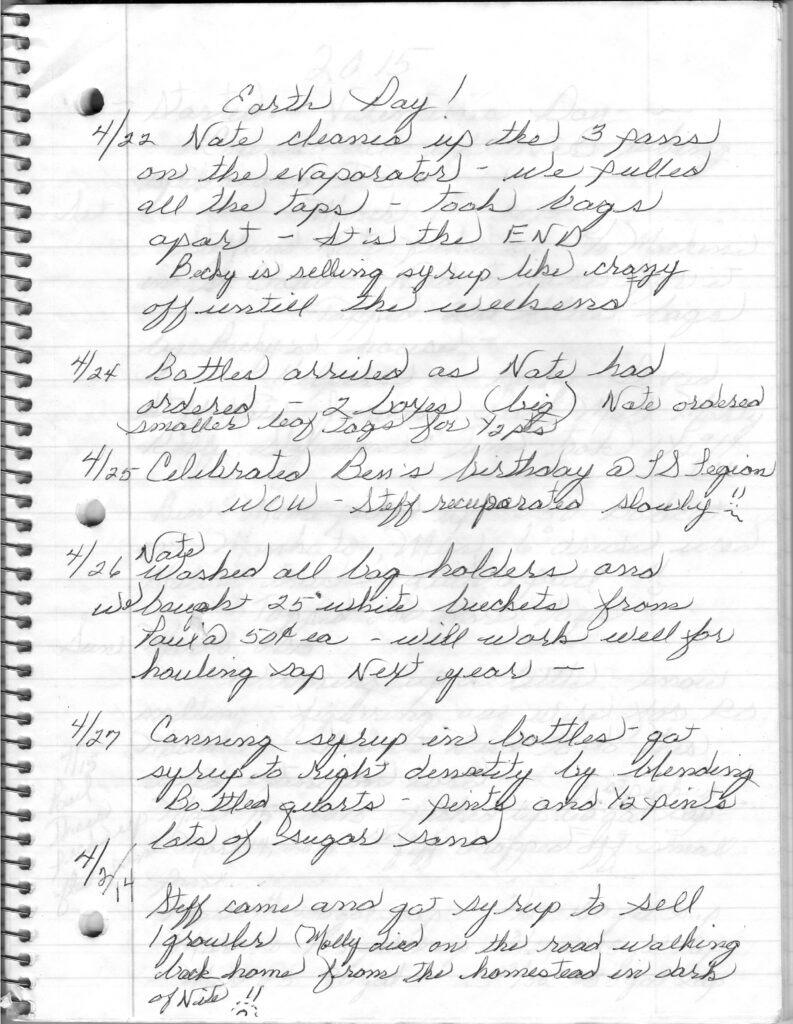 Earth Day!
4/22 Nate cleaned up the 3 pans
on the evaporator - we pulled
all the taps - took bags
apart - It is the END
Becky is selling syrup like crazy
off untill the weekend
4/24 Bottles arrived as Nate had
ordered - 2 boxes (big) Nate ordered
smaller leaf tags for 1/2 pts
4/25 Celebrated Ben's birthday @ Legion
WOW - Steff recuporated slowly !!
4/26 Nate washed all bag holders and
we bought 25 white buckets from
Paul @ 50¢ ea - will work well for
hauling sap Next year -
4/27 Canning syrup in bottles - got
syrup to right denstity by blending
Bottled quarts - pints and 1/2 pints
lots of sugar sand
Steff came and got syrup to sell
1 growler (Molly died on the road walking
back home) from the homestead in dark
of Nite !!